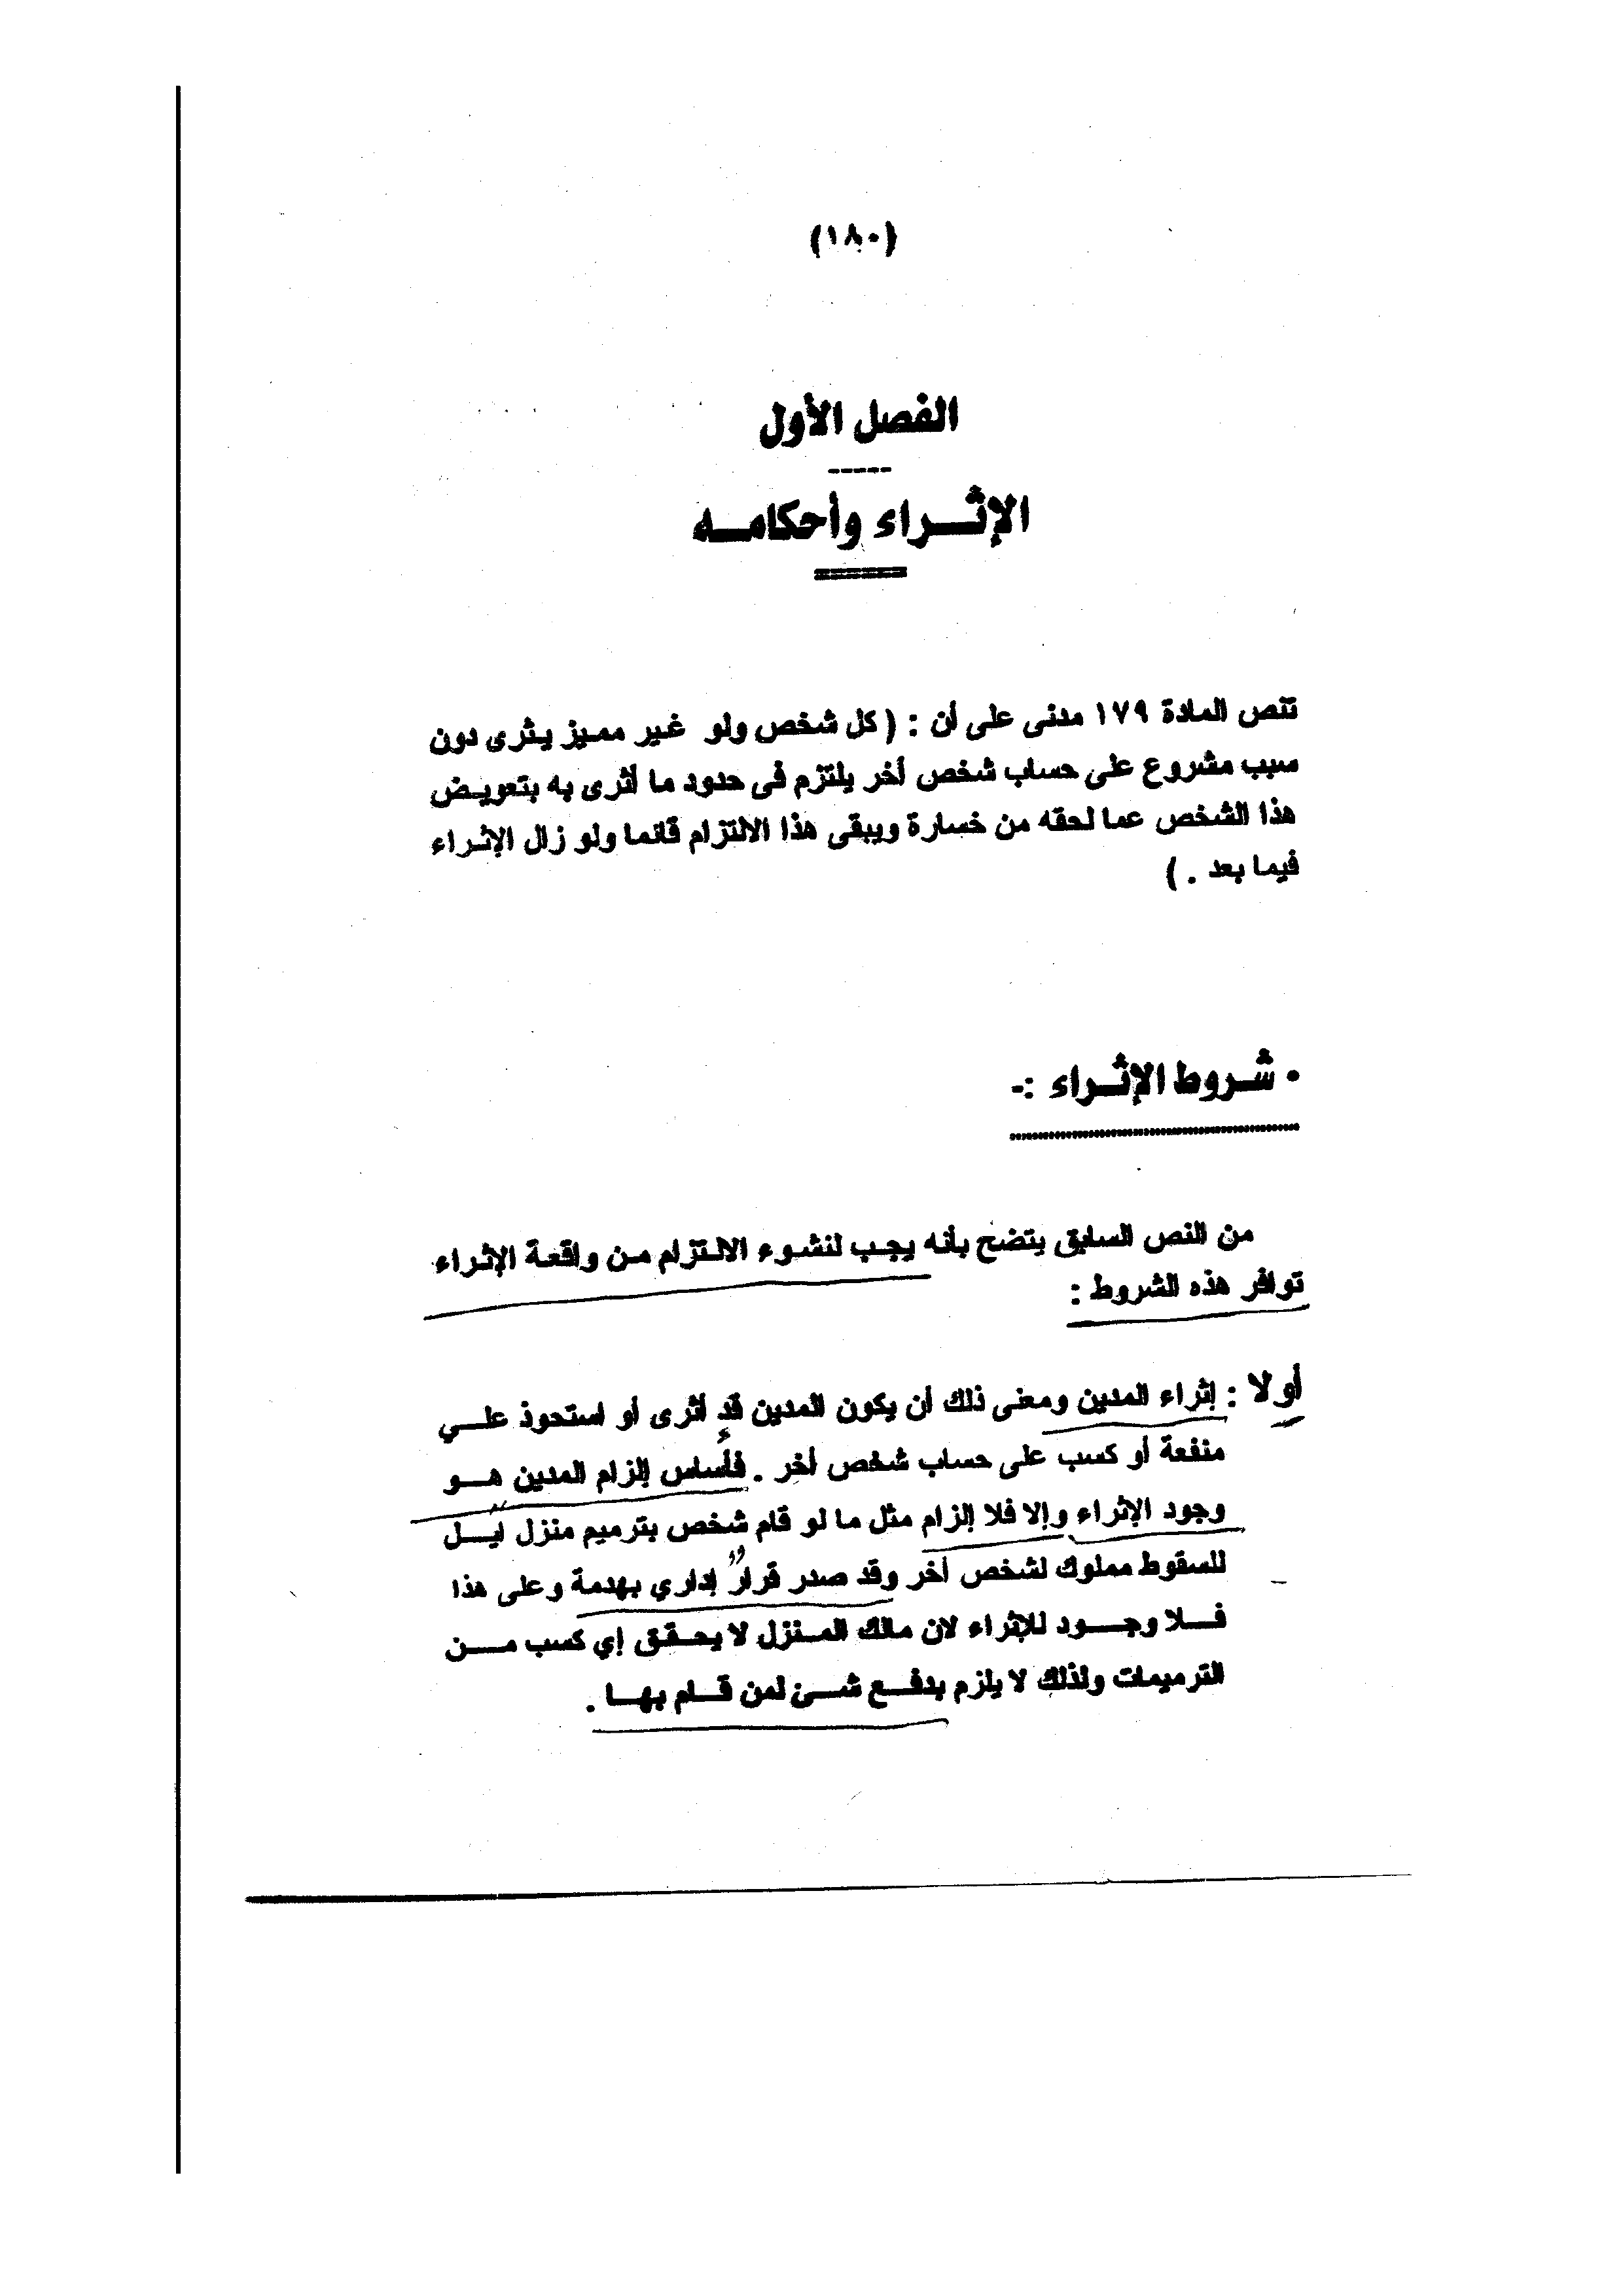 (١٨٠)
الفصل الأول
-----
الإثـــراء وأحكامـــه
تنص المادة ١٧٩ مدنى على أن : ( كل شخص ولو غير مميز يثرى دون
سبب مشروع على حساب شخص أخر يلتزم فى حدود ما أثرى به بتعويض
هذا الشخص عما لحقه من خسارة ويبقى هذا الالتزام قائما ولو زال الإثراء
فيما بعد . )
• شـروط الإثـراء :-
من النص السابق يتضح بأنه يجب لنشوء الالتزام من واقعة الإثراء
توافر هذه الشروط :
أولا : إثراء المدين ومعنى ذلك أن يكون المدين قد أثرى أو استحوذ علـــي
منفعة أو كسب على حساب شخص أخر . فأساس إلزام المدين هـــو
وجود الإثراء وإلا فلا إلزام مثل ما لو قام شخص بترميم منزل أيـــل
للسقوط مملوك لشخص أخر وقد صدر قرار إداري بهدمة وعلى هذا
فـــلا وجـــود للإثراء لان مالك المـنزل لا يحـقق إي كسب مـــن
الترميمات ولذلك لا يلزم بدفـــع شـــئ لمن قـــام بهـــا .